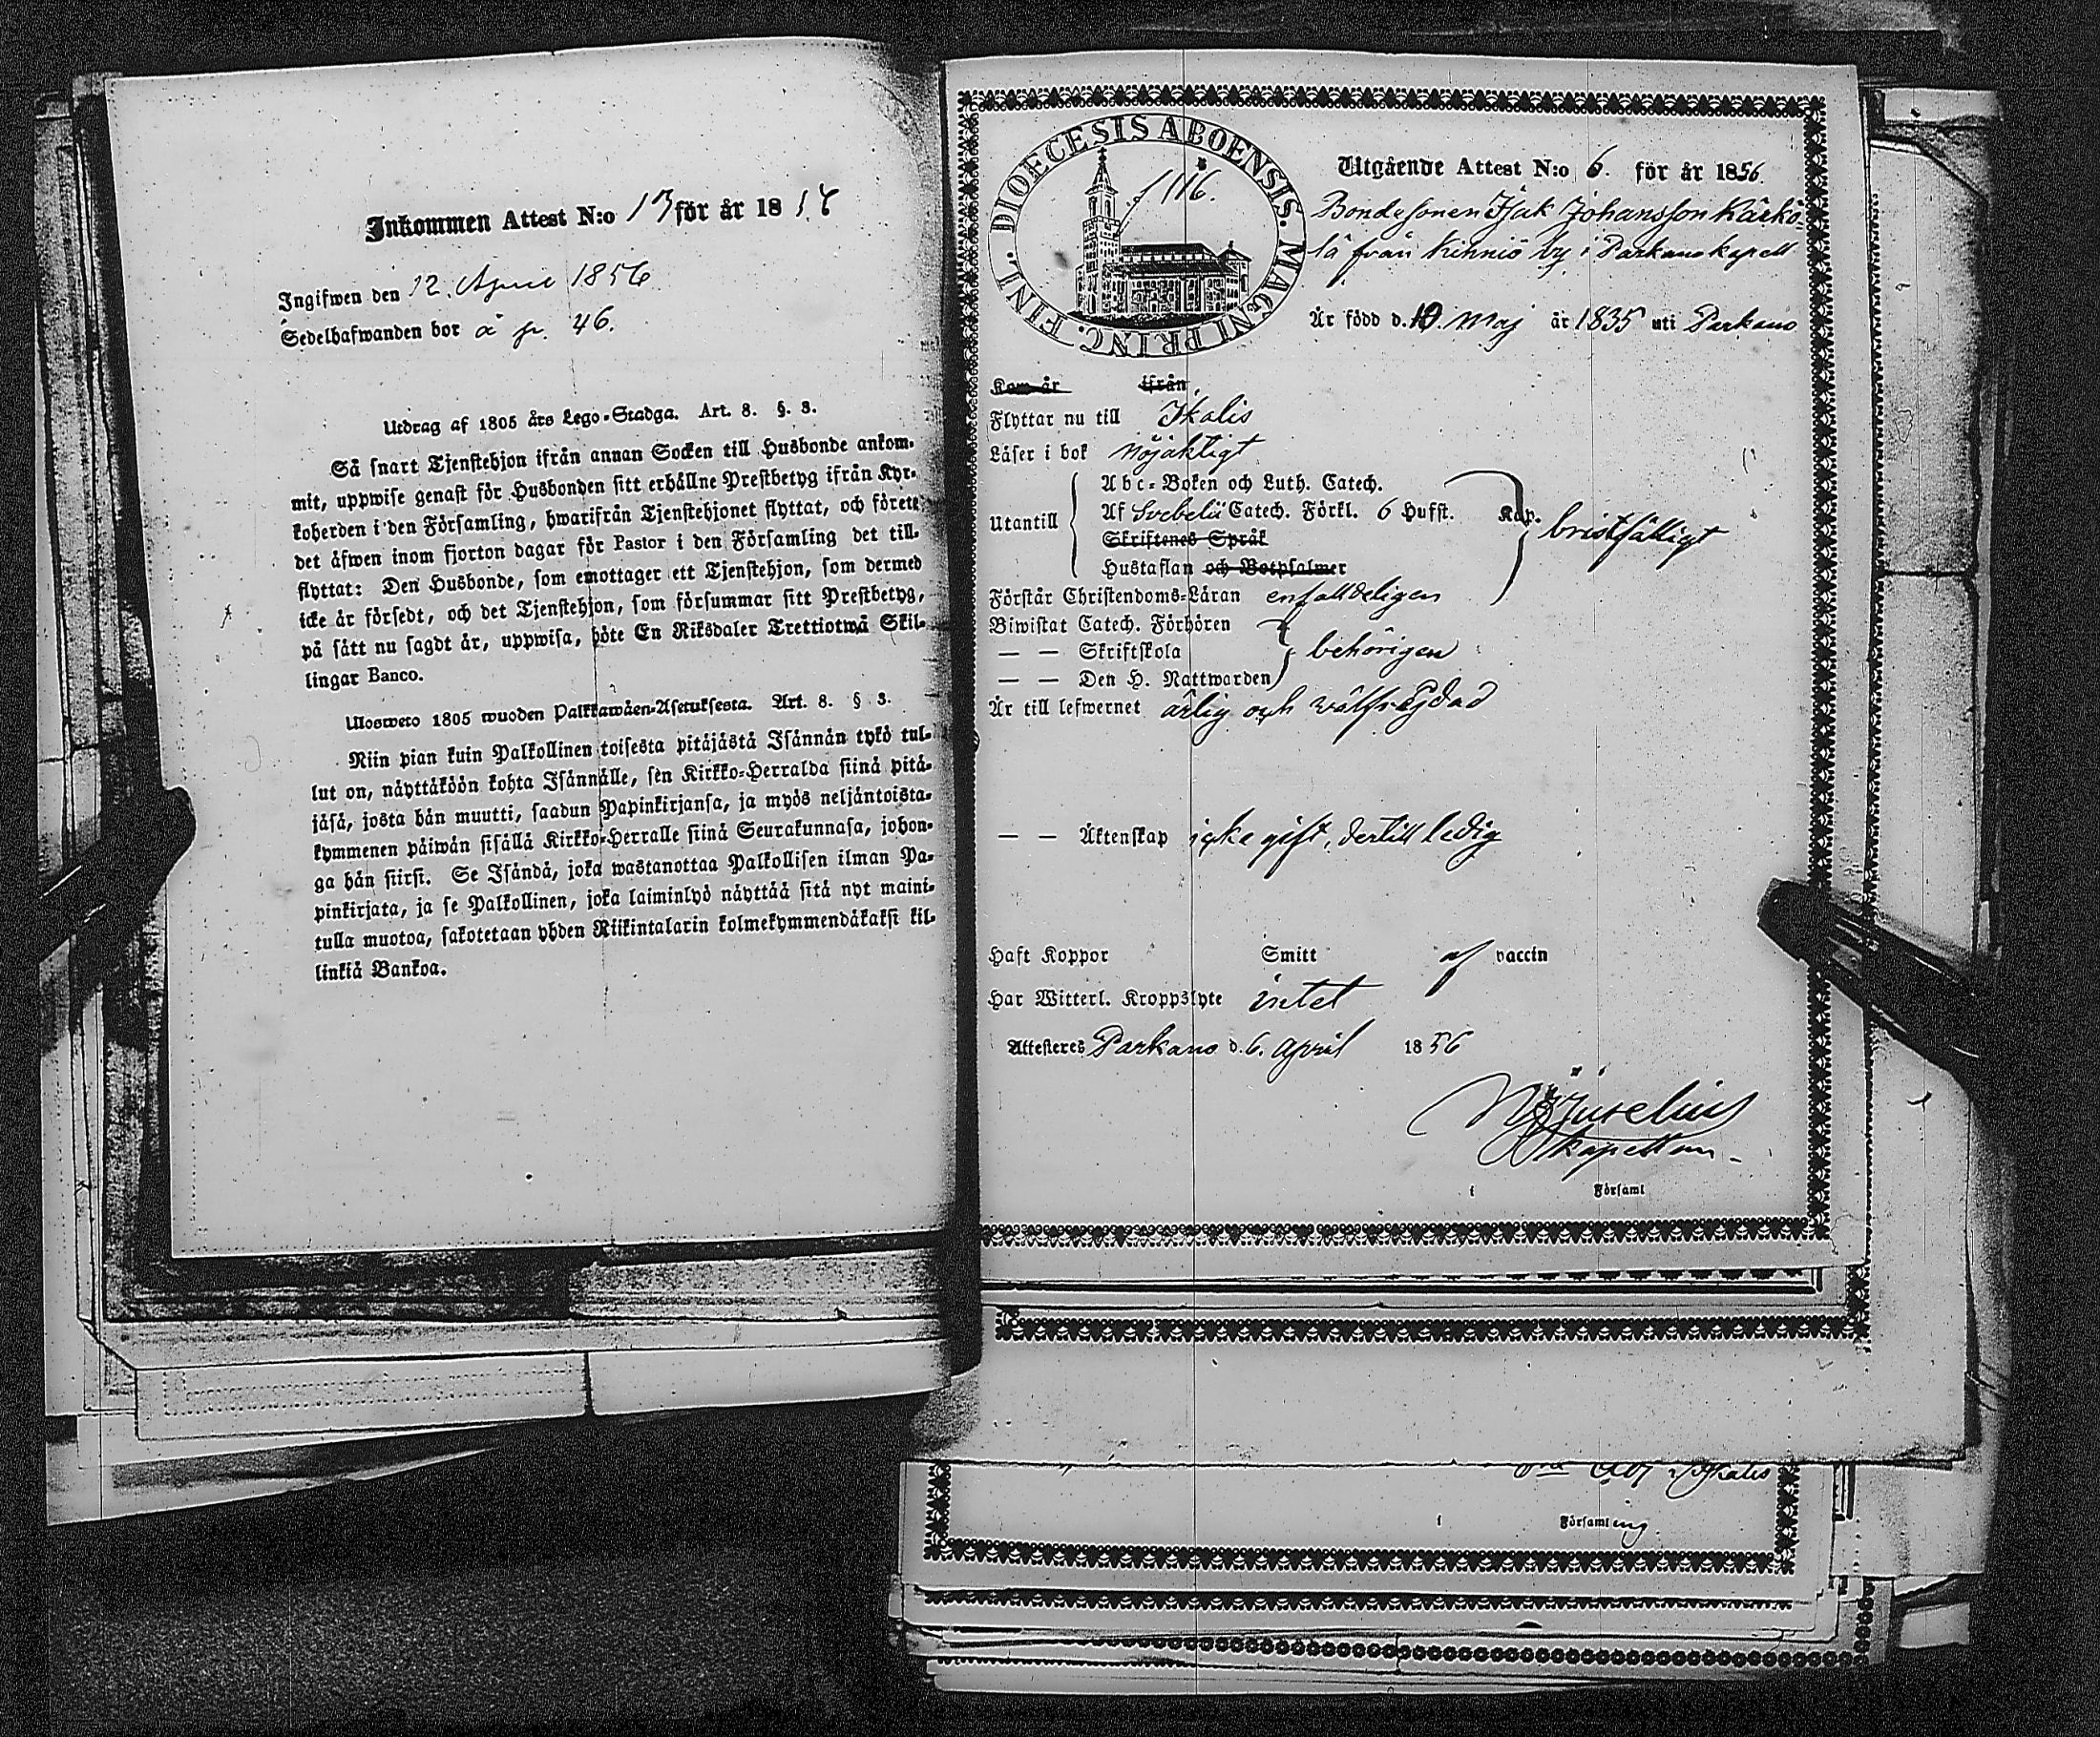 Inkommen Attest N:o 13 för år 18
Ingifwen den 12. April 1856
Sedelhafwanden bor å p. 46.
Utdrag af 1805 års Lego-Stadga. Art. 8. §. 3.
Så snart Tjenstehjon ifrån annan Socken till Husbonde ankom-
mit, uppwise genast för Husbonden sitt erhållne Prestbetyg ifrån Kyr-
koherden i den Församling, hwarifrån Tjenstehjonet flyttat, och förete
det äfwen inom fjorton dagar för Pastor i den Församling det till-
flyttat: Den Husbonde, som emottager ett Tjenstehjon, som dermed
icke är försedt, och det Tjenstehjon, som försummar sitt Prestbetyg,
på sätt nu sagdt är, uppwisa, böte En Riksdaler Trettiotwå Skil-
lingar Banco.
Ulosweto 1805 wuoden Palkkawäen-Asetuksesta. Art. 8. § 3.
Niin pian kuin Palkollinen toisesta pitäjästä Isännän tykö tul-
lut on, näyttäköön kohta Isännälle, sen Kirkko-Herralda siinä pitä-
jäsä, josta hän muutti, saadun Papinkirjansa, ja myös neljäntoista-
kymmenen päiwän sisällä Kirkko-Herralle siinä Seurakunnasa, johon-
ga hän siirsi. Se Isändä, joka wastanottaa Palkollisen ilman Pa-
pinkirjata, ja se Palkollinen, joka laiminlyö näyttää sitä nyt maini-
tulla muotoa, sakotetaan yhden Riikintalarin kolmekymmendäkaksi kil-
linkiä Bankoa.
DIOECESIS ABOENSIS. MAGNI PRINC. FINL.
1116.
Utgående Attest N:o 6. för år 1856.
Bondesonen Isak Johansson Kärkö
lä från Kihniö by i Parkano kapell
Är född d. 10. Maj år 1835 uti Parkano
Kom år ifrån
Flyttar nu till Ikalis
Läser i bok nöjaktigt
Utantill
Abc-Boken och Luth. Catech.
Af Svebelii Catech. Förkl. 6 Hufst. Kap. bristfälligt
Skriftenes Språk
Hustaflan och Botpsalmer
Förstår Christendoms-Läran enfalldeligen
Biwistat Catech. Förhören
— — Skriftskola behörigen
— — Den H. Nattwarden
Är till lefwernet ärlig och wälfrägdad
— — Äktenskap icke gift, dertill ledig
Haft Koppor Smitt af vaccin
Har Witterl. Kroppslyte intet
Attesteres Parkano d. 6. April 1856
kapellan
i Församl
Ikalis
i Församling.